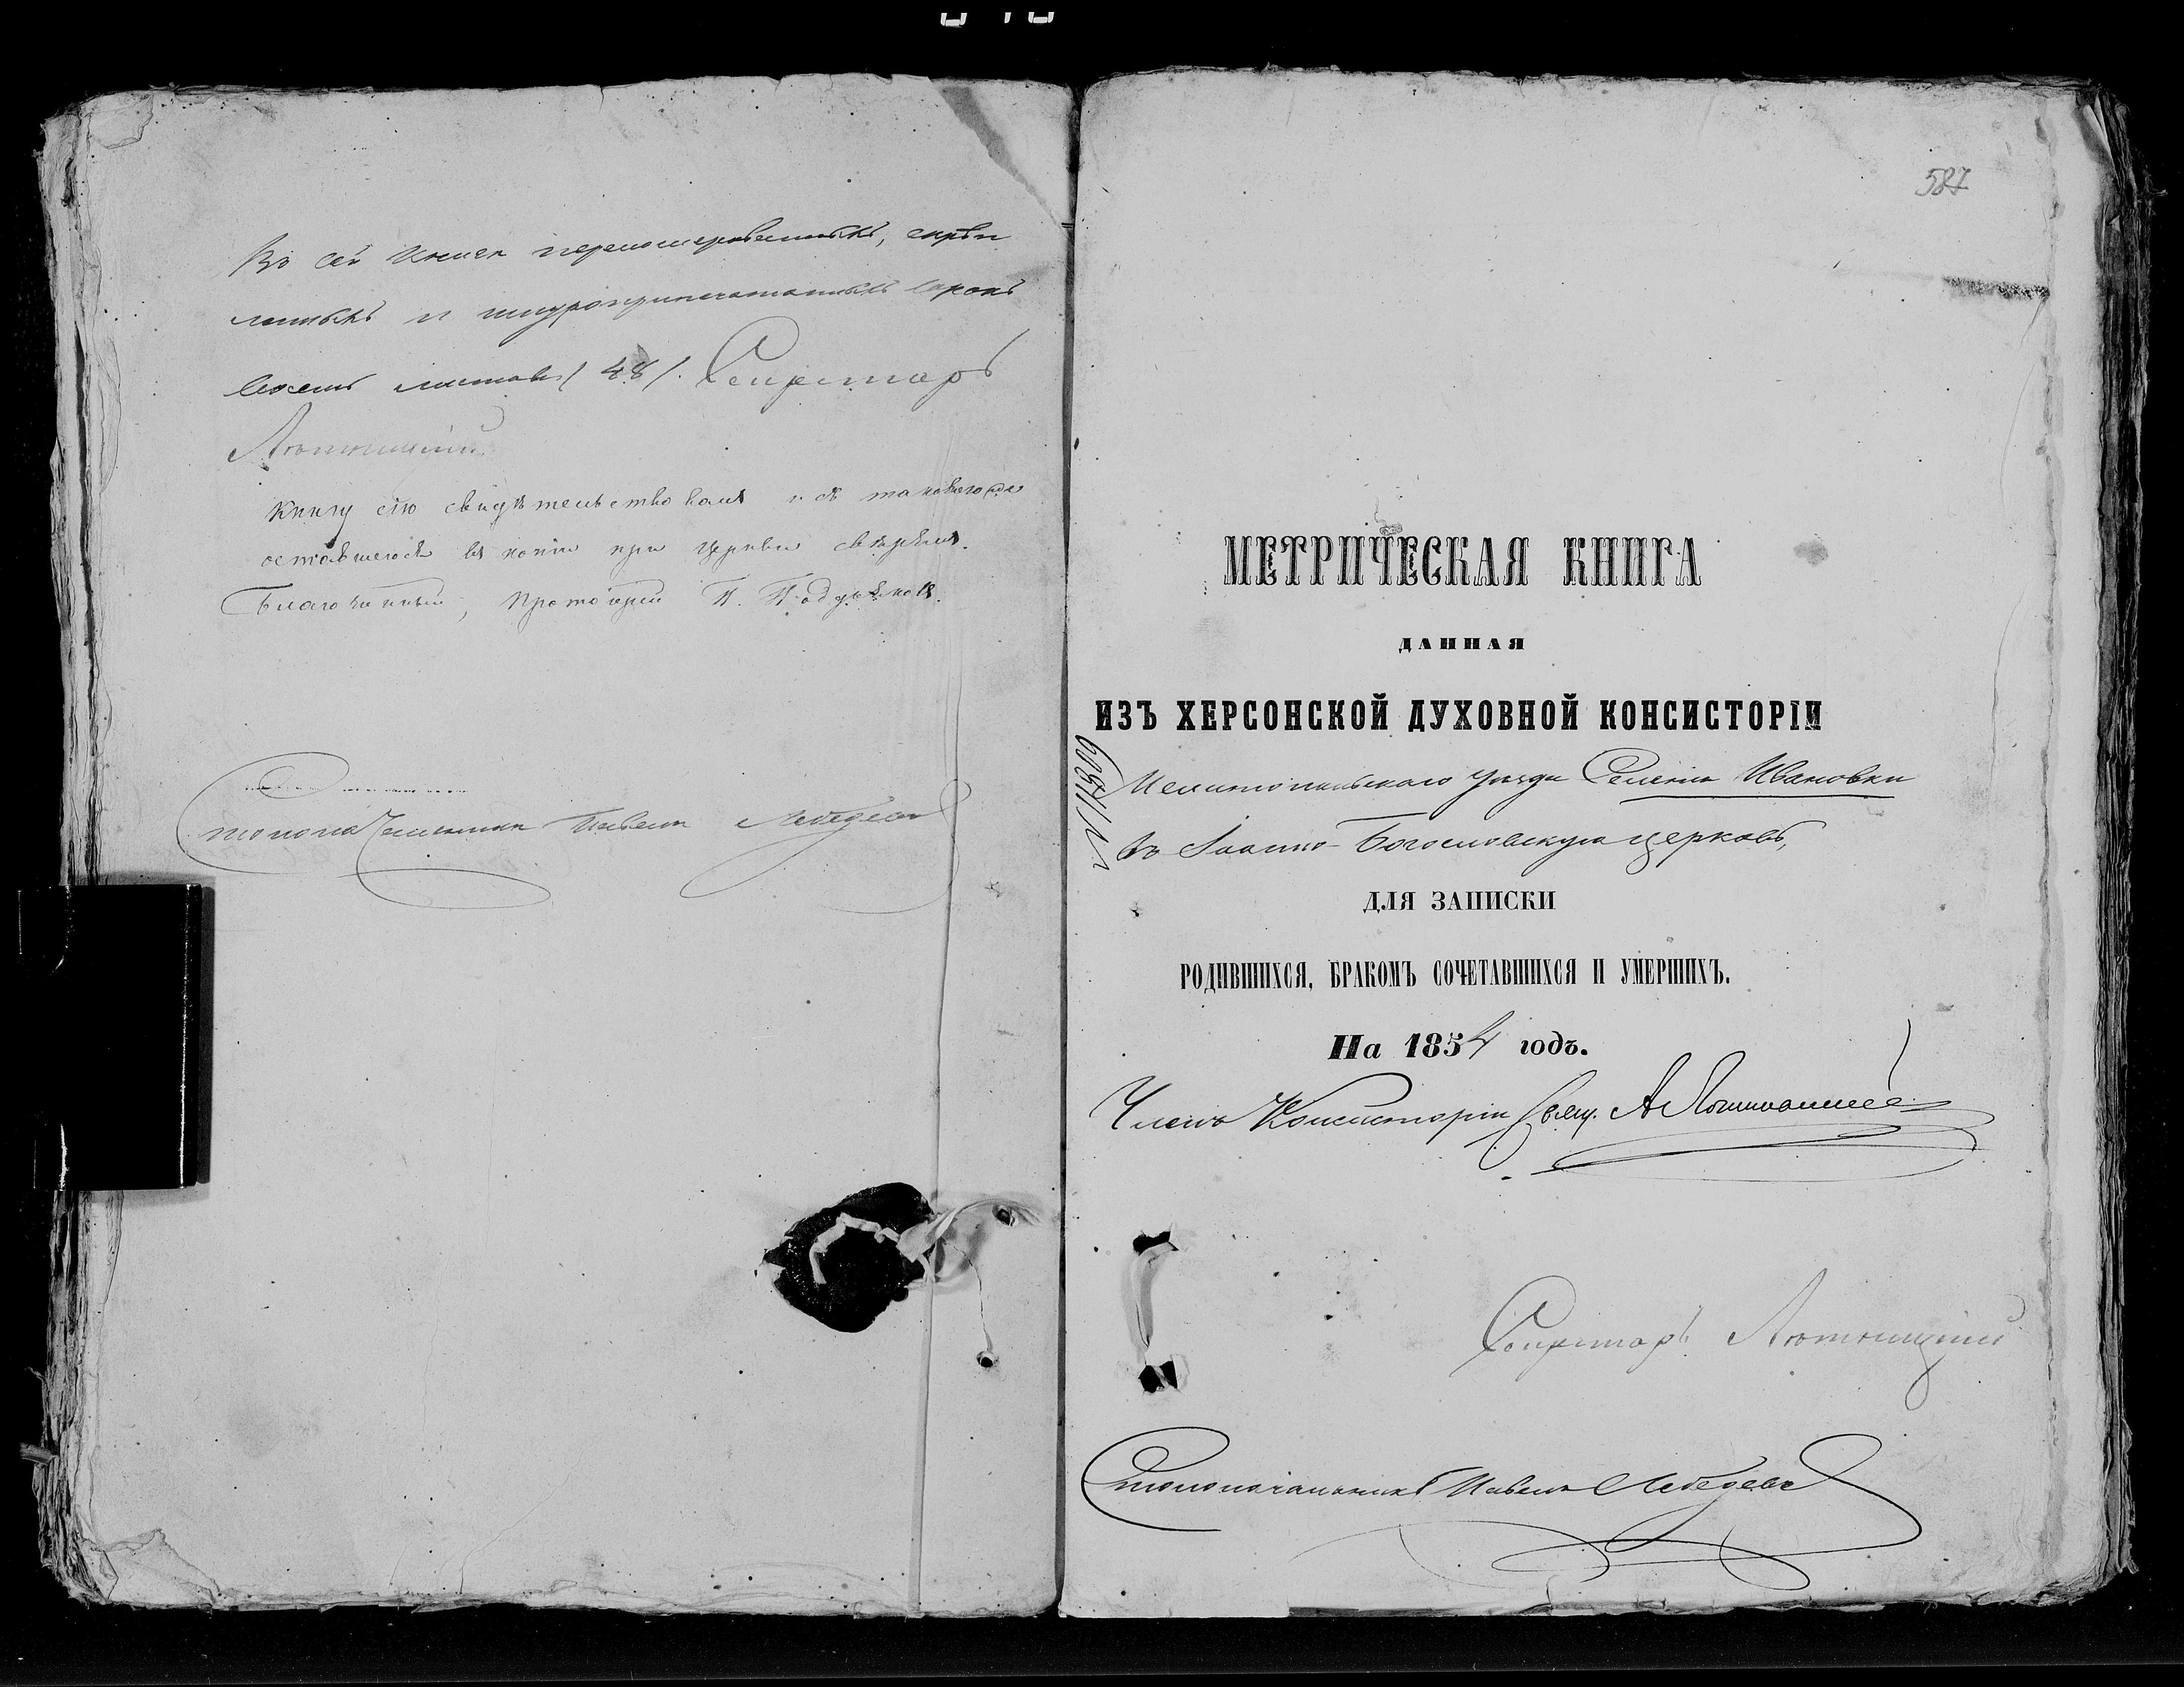 Въ сей книгѣ перенумерованныхъ, скрѣп
ленныхъ и шнуроприпечатанныхъ сорокъ
восемь листовъ (48). Секретарь
Лютинскій
Книгу сію свидѣтельствовалъ и съ таковою же
оставшеюся въ копіи при церкви свѣрялъ.
Благочинный, Протоіерей П.
Столоначальникъ Павелъ Лебедевъ
587
МЕТРИЧЕСКАЯ КНИГА
ДАННАЯ
ИЗЪ ХЕРСОНСКОЙ ДУХОВНОЙ КОНСИСТОРІИ
Мелитопольскаго уѣзда Селенія Ивановки
въ Іоанно-Богословскую церковь,
ДЛЯ ЗАПИСКИ
РОДИВШИХСЯ, БРАКОМЪ СОЧЕТАВШИХСЯ И УМЕРШИХЪ.
На 1854 годъ.
Членъ Консисторіи Свящ. А
Секретарь Лютинскій
Столоначальникъ Павелъ Лебедевъ